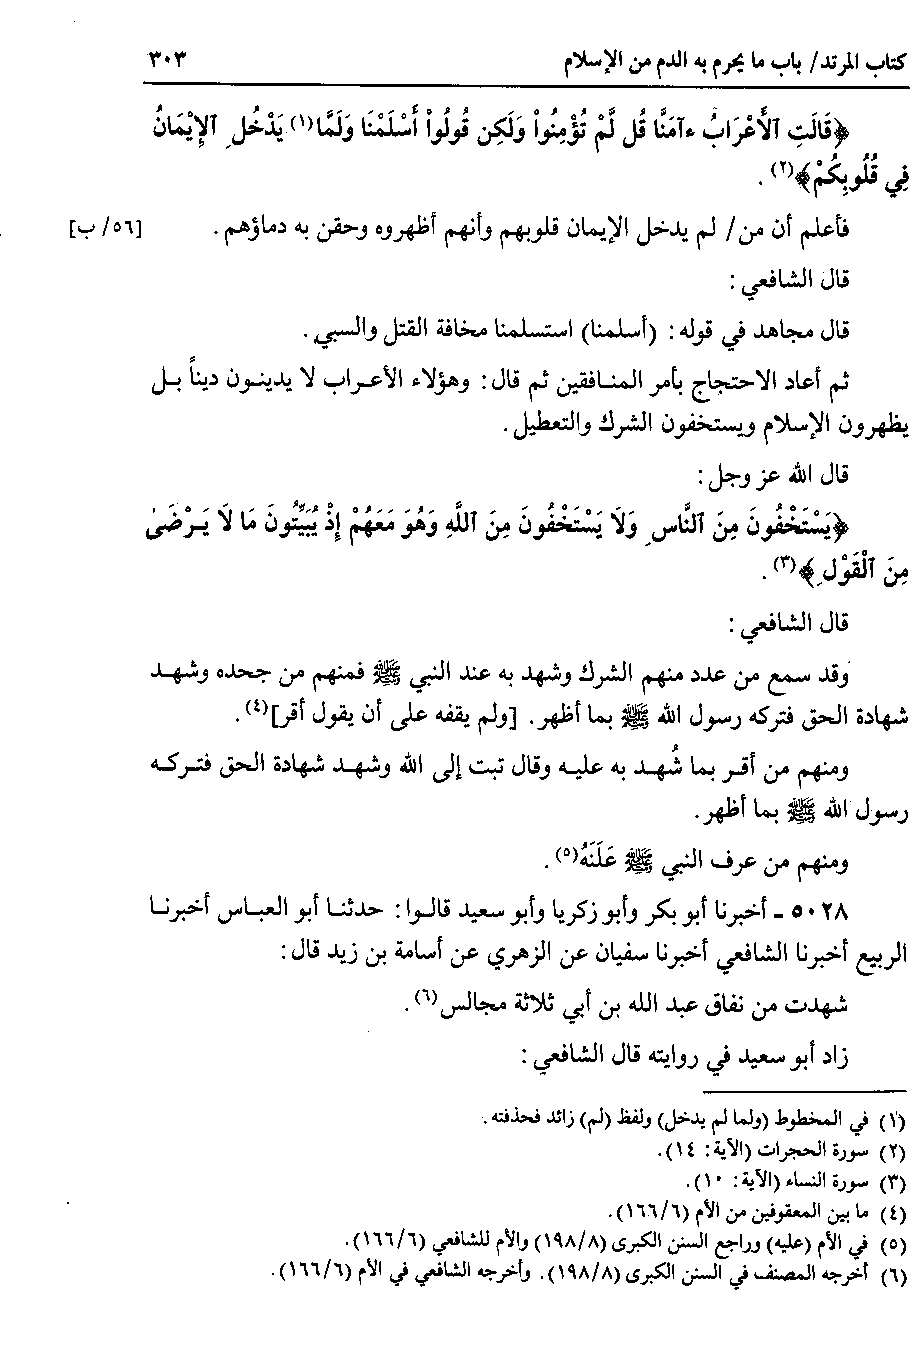 كتاب المرتد/ باب ما يحرم به الدم من الإسلام ٣٠٣
﴿قَالَتِ ٱلْأَعْرَابُ ءَامَنَّا قُل لَّمْ تُؤْمِنُواْ وَلَٰكِن قُولُوٓاْ أَسْلَمْنَا وَلَمَّا(١) يَدْخُلِ ٱلْإِيْمَانُ
فِي قُلُوبِكُمْ﴾(٢).
فأعلم أن من/ لم يدخل الإيمان قلوبهم وأنهم أظهروه وحقن به دماؤهم. [٥٦/ ب]
قال الشافعي:
قال مجاهد في قوله: (أسلمنا) استسلمنا مخافة القتل والسبي.
ثم أعاد الاحتجاج بأمر المنافقين ثم قال: وهؤلاء الأعراب لا يدينون ديناً بل
يظهرون الإسلام ويستخفون الشرك والتعطيل.
قال الله عز وجل:
﴿يَسْتَخْفُونَ مِنَ ٱلنَّاسِ وَلَا يَسْتَخْفُونَ مِنَ ٱللَّهِ وَهُوَ مَعَهُمْ إِذْ يُبَيِّتُونَ مَا لَا يَرْضَىٰ
مِنَ ٱلْقَوْلِ﴾(٣).
قال الشافعي:
وقد سمع من عدد منهم الشرك وشهد به عند النبي ﷺ فمنهم من جحده وشهد
شهادة الحق فتركه رسول الله ﷺ بما أظهر. [ولم يقفه على أن يقول أقر](٤).
ومنهم من أقر بما شُهد به عليه وقال تبت إلى الله وشهد شهادة الحق فتركه
رسول الله ﷺ بما أظهر.
ومنهم من عرف النبي ﷺ عَلَنَهُ(٥).
٥٠٢٨ ـ أخبرنا أبو بكر وأبو زكريا وأبو سعيد قالوا: حدثنا أبو العباس أخبرنا
الربيع أخبرنا الشافعي أخبرنا سفيان عن الزهري عن أسامة بن زيد قال:
شهدت من نفاق عبد الله بن أبي ثلاثة مجالس(٦).
زاد أبو سعيد في روايته قال الشافعي:
(١) في المخطوط (ولما لم يدخل) ولفظ (لم) زائد فحذفته.
(٢) سورة الحجرات (الآية: ١٤).
(٣) سورة النساء (الآية: ١٠).
(٤) ما بين المعقوفين من الأم (١٦٦/٦).
(٥) في الأم (عليه) وراجع السنن الكبرى (١٩٨/٨) والأم للشافعي (١٦٦/٦).
(٦) أخرجه المصنف في السنن الكبرى (١٩٨/٨). وأخرجه الشافعي في الأم (١٦٦/٦).